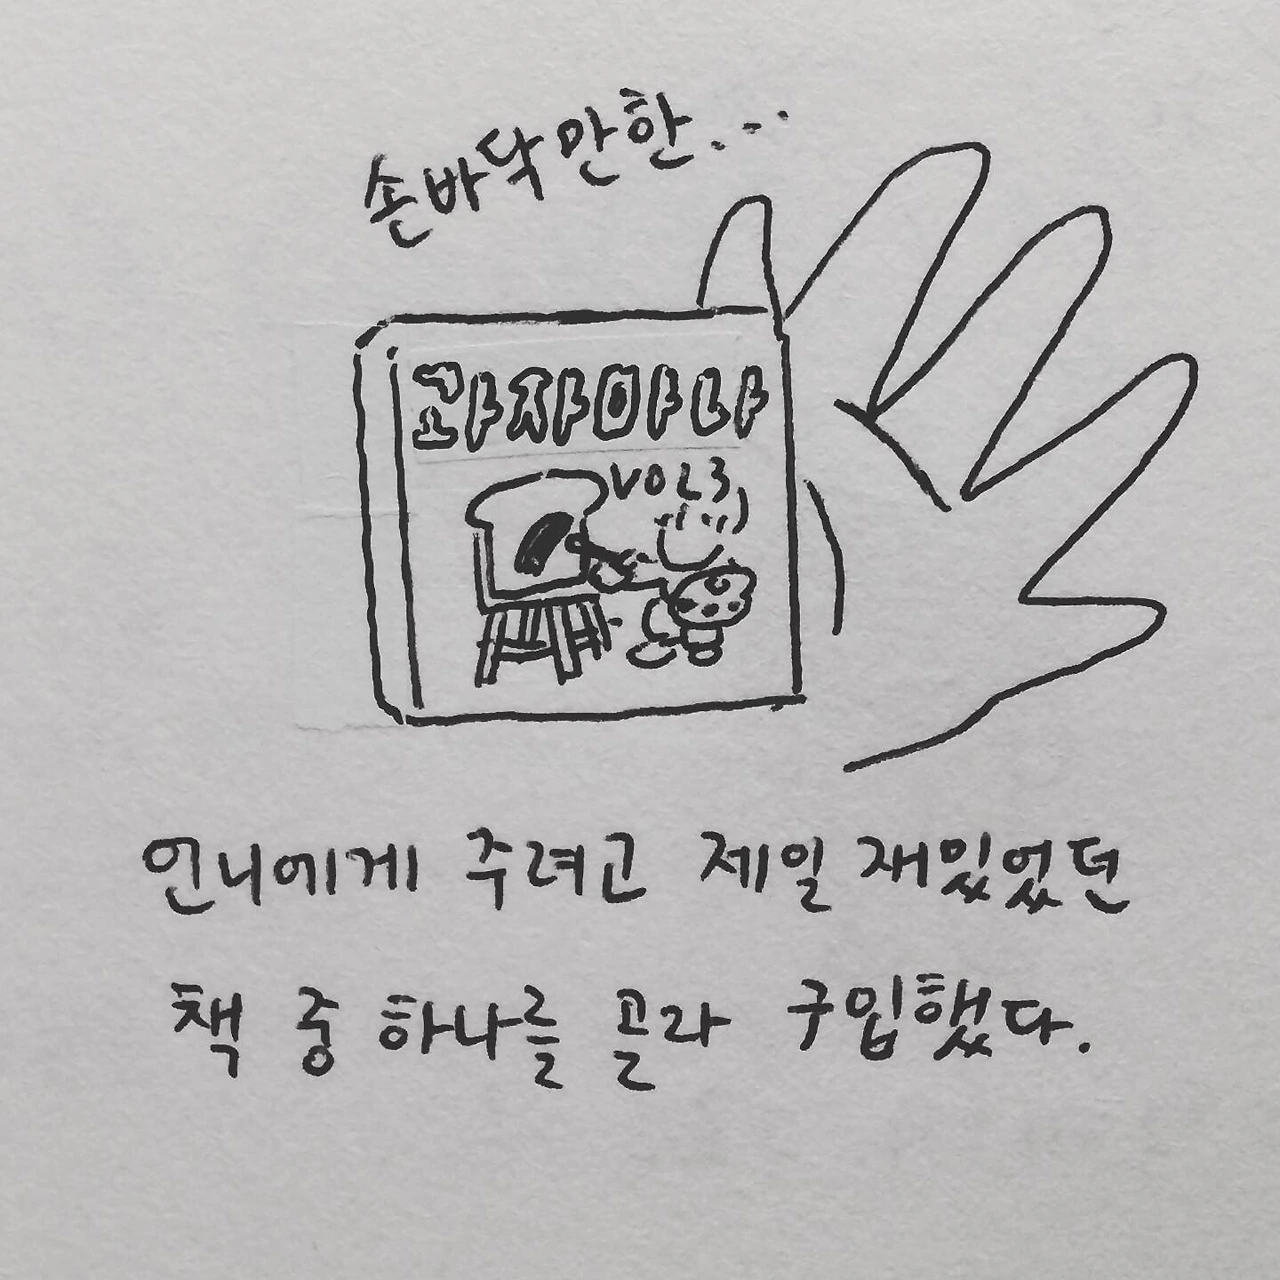 손바닥만한...
과자마나
VOL3
언니에게 주려고 제일 재밌었던
책 중 하나를 골라 구입했다.